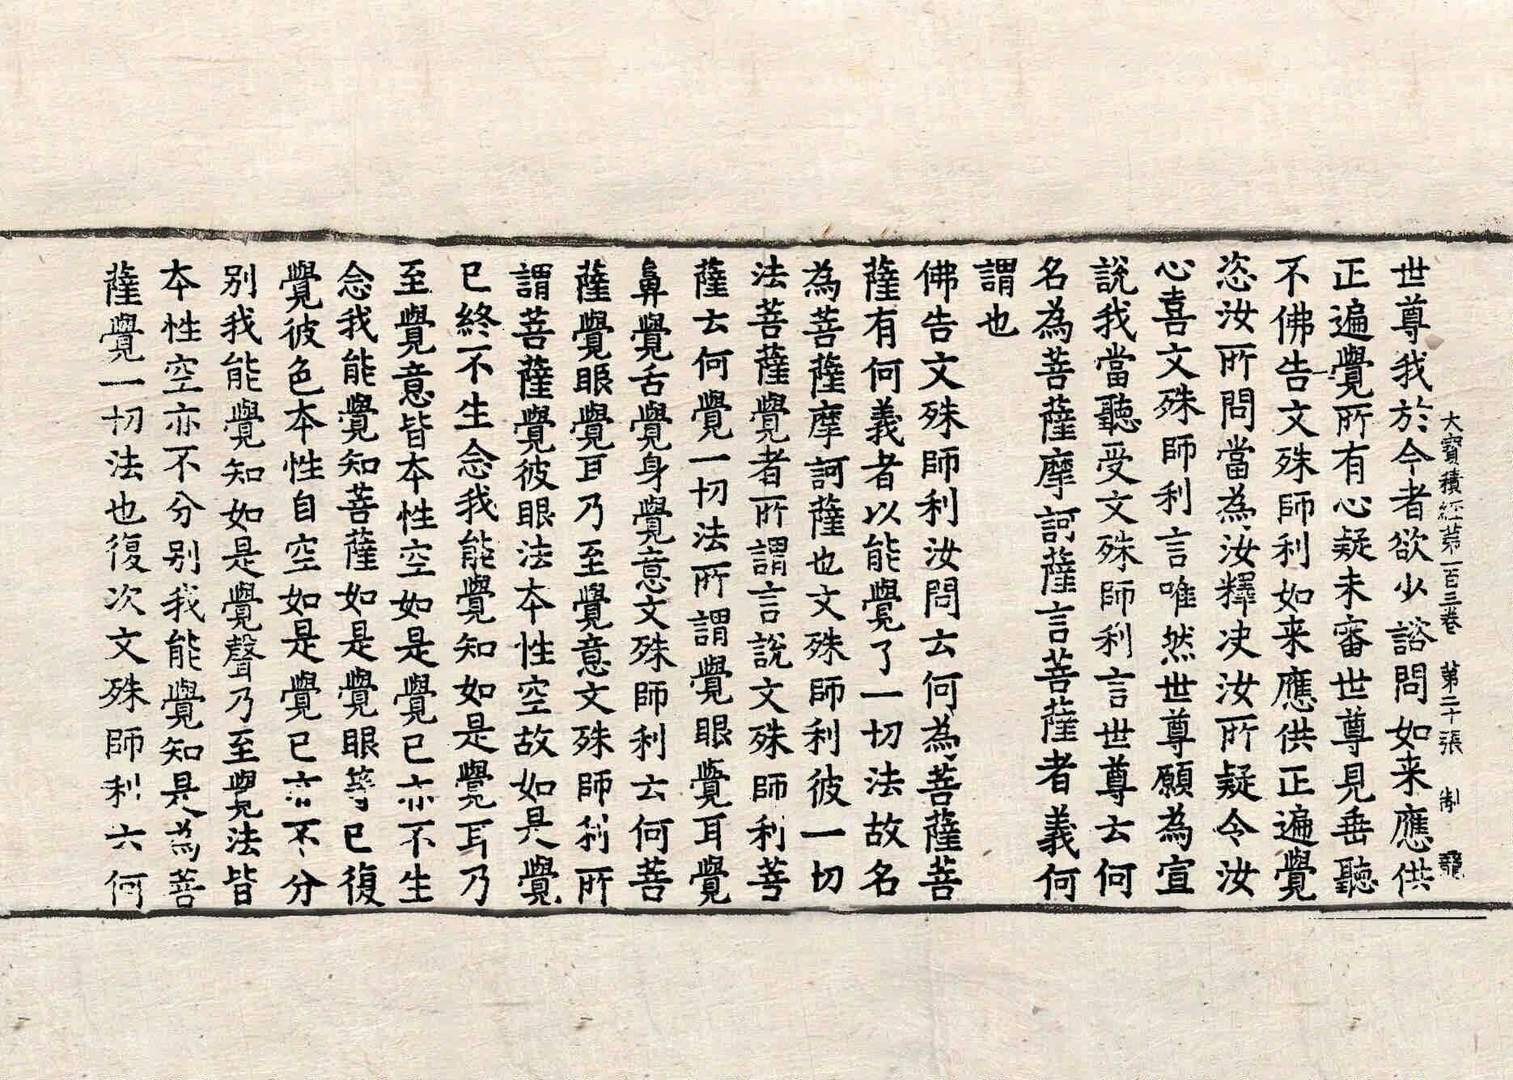 大寶積經第一百三卷 第二十張 制
世尊我於今者欲少諮問如来應供
正遍覺所有心疑未審世尊見垂聽
不佛告文殊師利如来應供正遍覺
恣汝所問當為汝釋决汝所疑令汝
心喜文殊師利言唯然世尊願為宣
說我當聽受文殊師利言世尊云何
名為菩薩摩訶薩言菩薩者義何
謂也
佛告文殊師利汝問云何為菩薩菩
薩有何義者以能覺了一切法故名
為菩薩摩訶薩也文殊師利彼一切
法菩薩覺者所謂言說文殊師利菩
薩云何覺一切法所謂覺眼覺耳覺
鼻覺舌覺身覺意文殊師利云何菩
薩覺眼覺耳乃至覺意文殊師利所
謂菩薩覺彼眼法本性空故如是覺
已終不生念我能覺知如是覺耳乃
至覺意皆本性空如是覺已亦不生
念我能覺知菩薩如是覺眼等已復
覺彼色本性自空如是覺已亦不分
別我能覺知如是覺聲乃至覺法皆
本性空亦不分別我能覺知是為菩
薩覺一切法也復次文殊師利云何